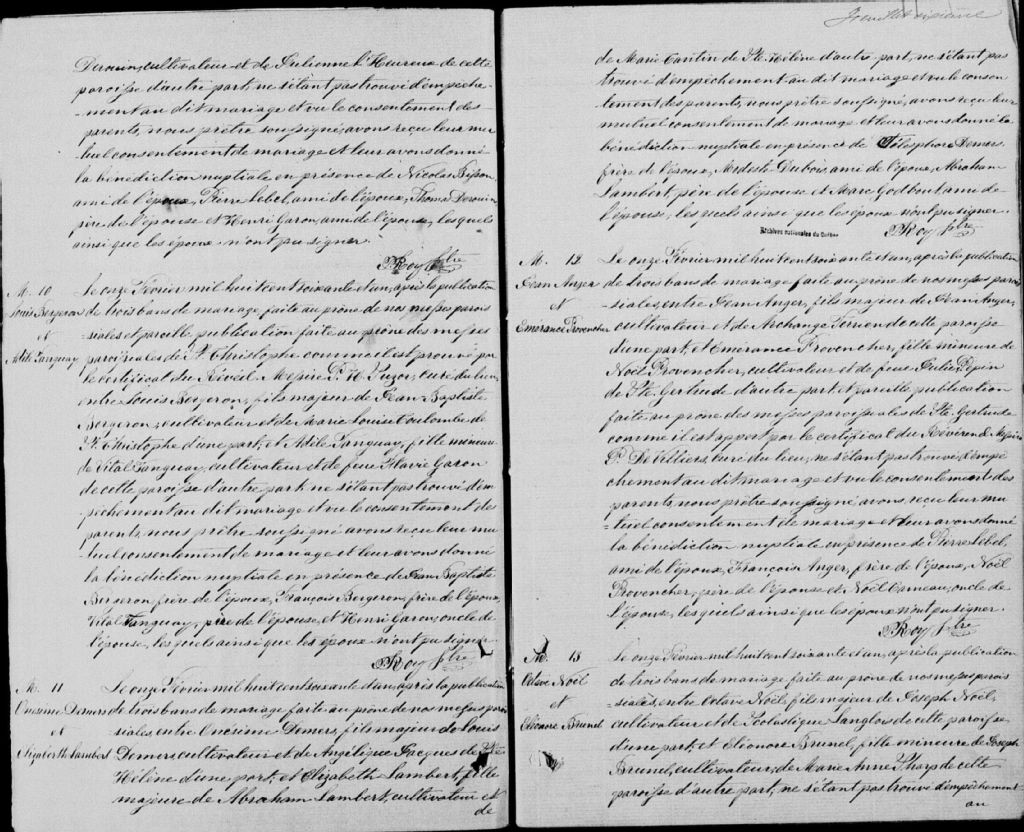 Derouin, cultivateur et de Julienne L'Heureux de cette
paroisse d'autre part, ne s'étant pas trouvé d'empêche-
-ment au dit mariage et vu le consentement des
parents, nous prêtre soussigné, avons reçu leur mu
tuel consentement de mariage et leur avons donné
la bénédiction nuptiale en présence de Nicolas Bisson,
ami de l'époux, Pierre Lebel, ami de l'époux, Thomas Derouin
père de l'épouse et Henri Garon, ami de l'époux, lesquels
ainsi que les époux n'ont pu signer.
PRoy Ptre
M. 10
Louis Bergeron
et
Adèle Tanguay
Le onze Février mil huit cent soixante et un, après la publication
de trois bans de mariage faite au prône de nos messes parois
-siales et pareille publication faite au prône des messes
paroissiales de St. Christophe comme il est prouvé par
le certificat du Révéd. Messire P. H. Suzor, curé du lieu,
entre Louis Bergeron, fils majeur de Jean Baptiste
Bergeron, cultivateur et de Marie Louise Coulombe de
St. Christophe d'une part, et Adèle Tanguay, fille mineure
de Vital Tanguay, cultivateur et de feue Flavie Garon
de cette paroisse d'autre part, ne s'étant pas trouvé d'em
pêchement au dit mariage et vu le consentement des
parents, nous prêtre soussigné avons reçu leur mu
tuel consentement de mariage et leur avons donné
la bénédiction nuptiale en présence de Jean Baptiste
Bergeron frère de l'époux, François Bergeron, frère de l'époux,
Vital Tanguay, père de l'épouse, et Henri Garon, oncle de
l'épouse, lesquels ainsi que les époux n'ont pu signer.
PRoy Ptre
M. 11
Onésime Demers
et
Elizabeth Lambert
Le onze Février mil huit cent soixante et un, après la publication
de trois bans de mariage faite au prône de nos messes parois
siales entre Onésime Demers, fils majeur de Louis
Demers, cultivateur et de Angélique Jacques de Ste
Hélène d'une part, et Elizabeth Lambert, fille
majeure de Abraham Lambert, cultivateur et
de
Feuillet sixième
de Marie Cantin de Ste. Hélène d'autre part, ne s'étant pas
trouvé d'empêchement au dit mariage et vu le consen
tement des parents, nous prêtre soussigné, avons reçu leur
mutuel consentement de mariage et leur avons donné la
bénédiction nuptiale en présence de Télesphore Demers
frère de l'époux, Modeste Dubois ami de l'époux, Abraham
Lambert, père de l'épouse et Marc Godbout ami de
l'épouse, lesquels ainsi que les époux n'ont pu signer.
Archives nationales du Québec
PRoy Ptre
M. 12
Jean Anger
et
Emérance Provencher
Le onze Février mil huit cent soixante et un, après la publication
de trois bans de mariage faite au prône de nos messes parois
siales entre Jean Anger, fils majeur de Jean Anger,
cultivateur et de Archange Terrien de cette paroisse
d'une part, et Emérance Provencher, fille mineure de
Noël Provencher, cultivateur et de feue Julie Pepin
de Ste. Gertrude d'autre part et pareille publication
faite au prône des messes paroissiales de Ste. Gertrude
comme il est appert par le certificat du Révérend Messire
C. De Villiers, curé du lieu, ne s'étant pas trouvé d'empê
chement au dit mariage et vu le consentement des
parents, nous prêtre soussigné, avons reçu leur mu
-tuel consentement de mariage et leur avons donné
la bénédiction nuptiale en présence de Pierre Lebel,
ami de l'époux, François Anger, frère de l'époux, Noël
Provencher, père de l'épouse et Noël Carneau, oncle de
l'épouse, lesquels ainsi que les époux n'ont pu signer.
PRoy Ptre
M. 13
Octave Noël
et
Eléonore Brunel
Le onze Février mil huit cent soixante et un, après la publication
de trois bans de mariage faite au prône de nos messes parois
-siales, entre Octave Noël, fils majeur de Joseph Noël,
cultivateur et de Scolastique Langlois de cette paroisse
d'une part, et Eléonore Brunel, fille mineure de Joseph
Brunel, cultivateur, de Marie Anne Sharp de cette
paroisse d'autre part, ne s'étant pas trouvé d'empêchement
au